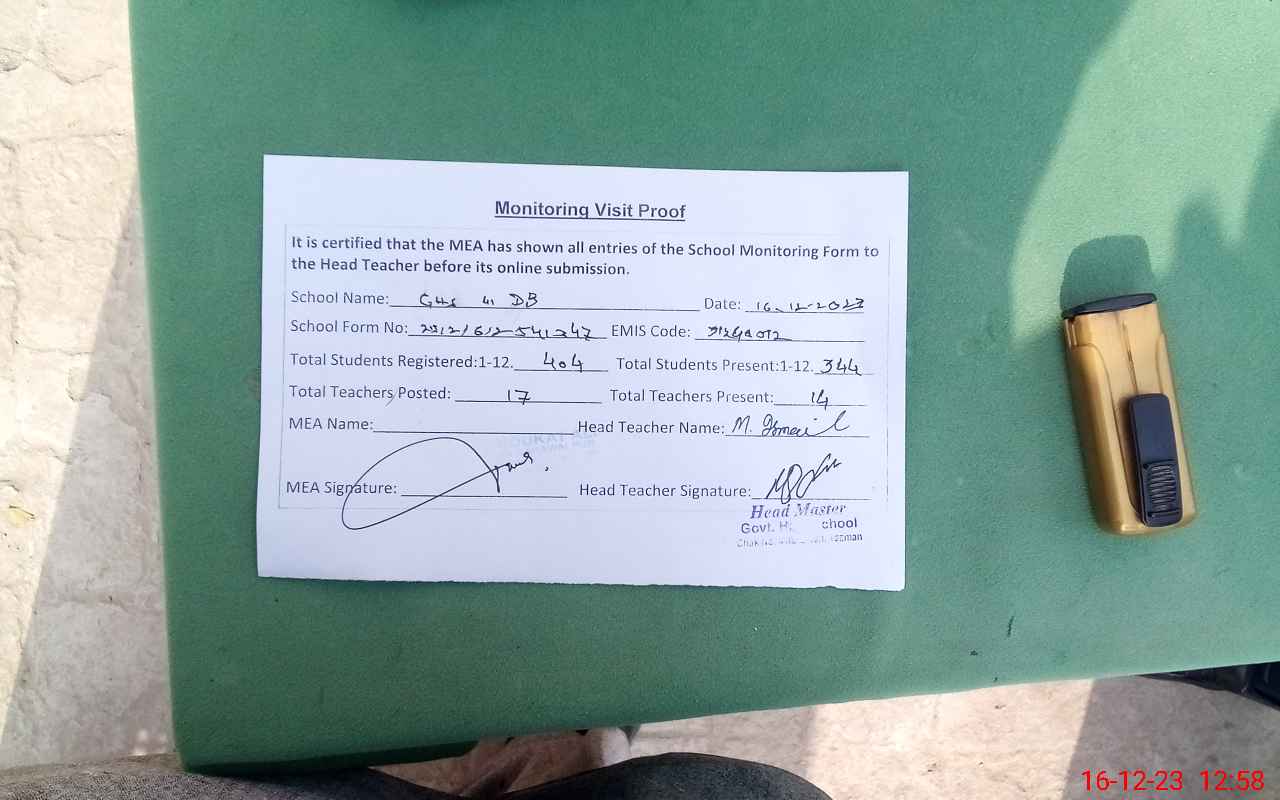 Monitoring Visit Proof
It is certified that the MEA has shown all entries of the School Monitoring Form to
the Head Teacher before its online submission.
School Name: GHS 41 DB Date: 16-12-2023
School Form No: EMIS Code:
Total Students Registered:1-12. 404 Total Students Present:1-12. 344
Total Teachers Posted: 17 Total Teachers Present: 14
MEA Name: Head Teacher Name: M. Ismail
MEA Signature: Head Teacher Signature:
Head Master
Govt. chool
16-12-23 12:58